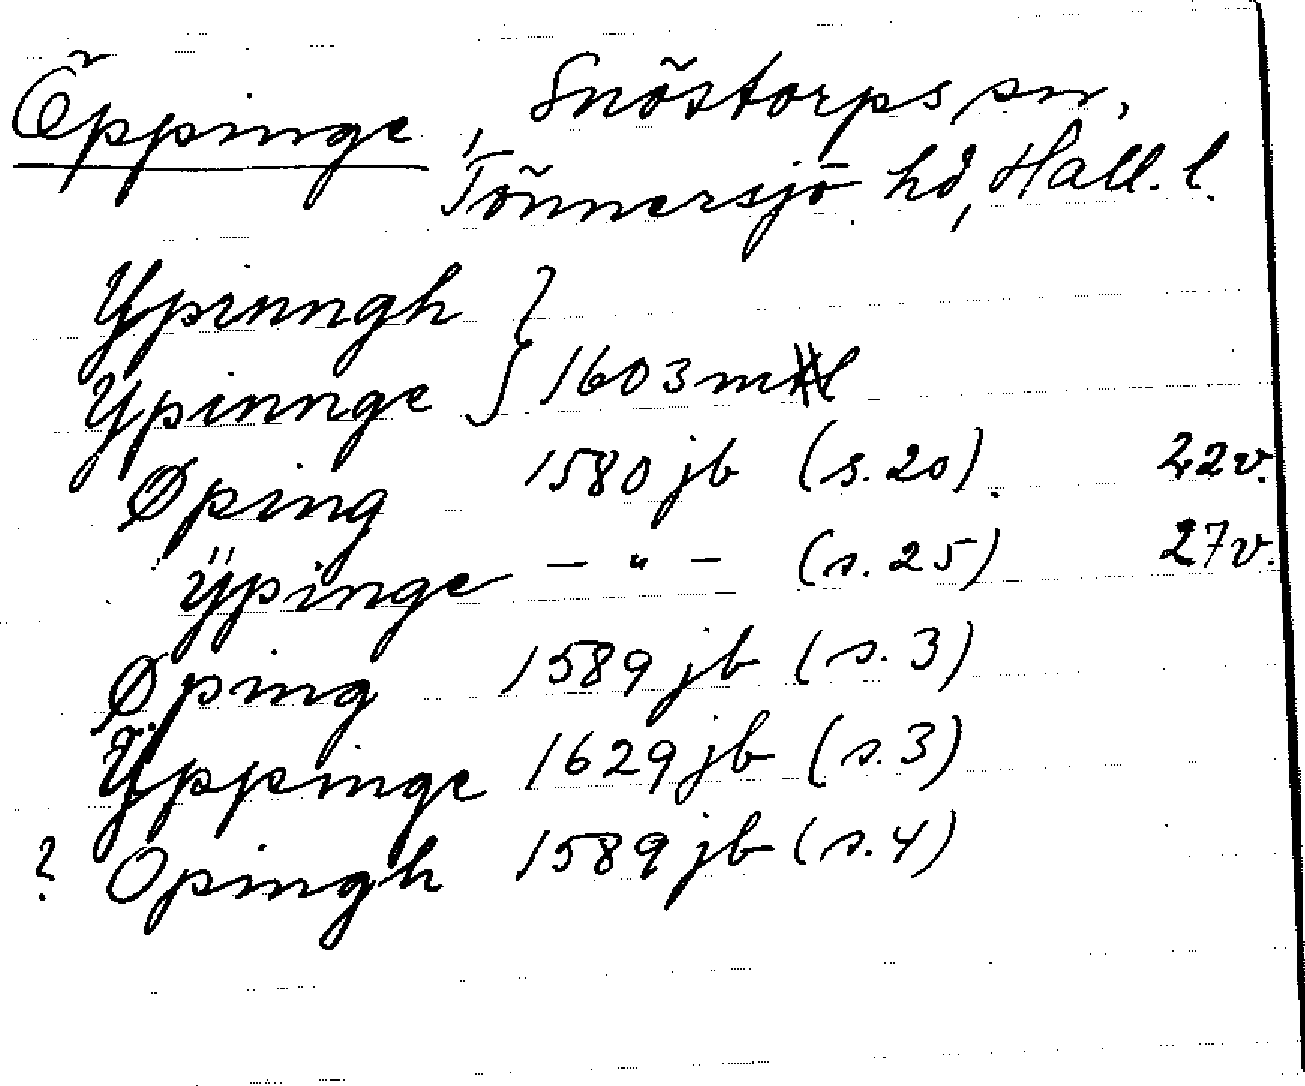 Öppinge, Snöstorps sn,
Tönnersjö hd, Hall. l.
Ypinngh }
Ypinnge } 1603 ml
Øping 1580 jb (s. 20) 22v.
Ÿpinge — " — (s. 25) 27v.
Øping 1589 jb (s. 3)
Ÿppinge 1629 jb (s. 3)
? Opingh 1589 jb (s. 4)